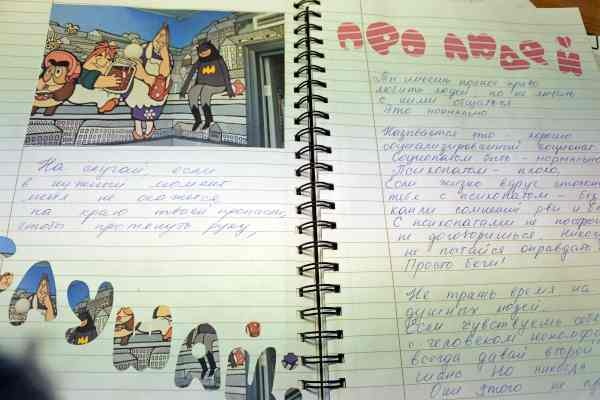 На случай, если
в нужный момент
меня не окажется
на краю твоей пропасти,
чтобы протянуть руку,
ДУМАЙ:
ПРО ЛЮДЕЙ
Ты имеешь полное право
любить людей, но не любить
с ними общаться.
Это нормально.
Называется это - хорошо
социализированный социопат.
Социопатом быть - нормально
Психопатом - плохо.
Если жизнь вдруг столкнет
тебя с психопатом - без
капли сомнений рви и
С психопатами не
не договоришься. Никогда
не пытайся оправдать.
Просто беги!
Не трать время на
душных людей.
Если чувствуешь себя
с человеком некомфо
всегда давай второй
шанс. Но никогда
Они этого не